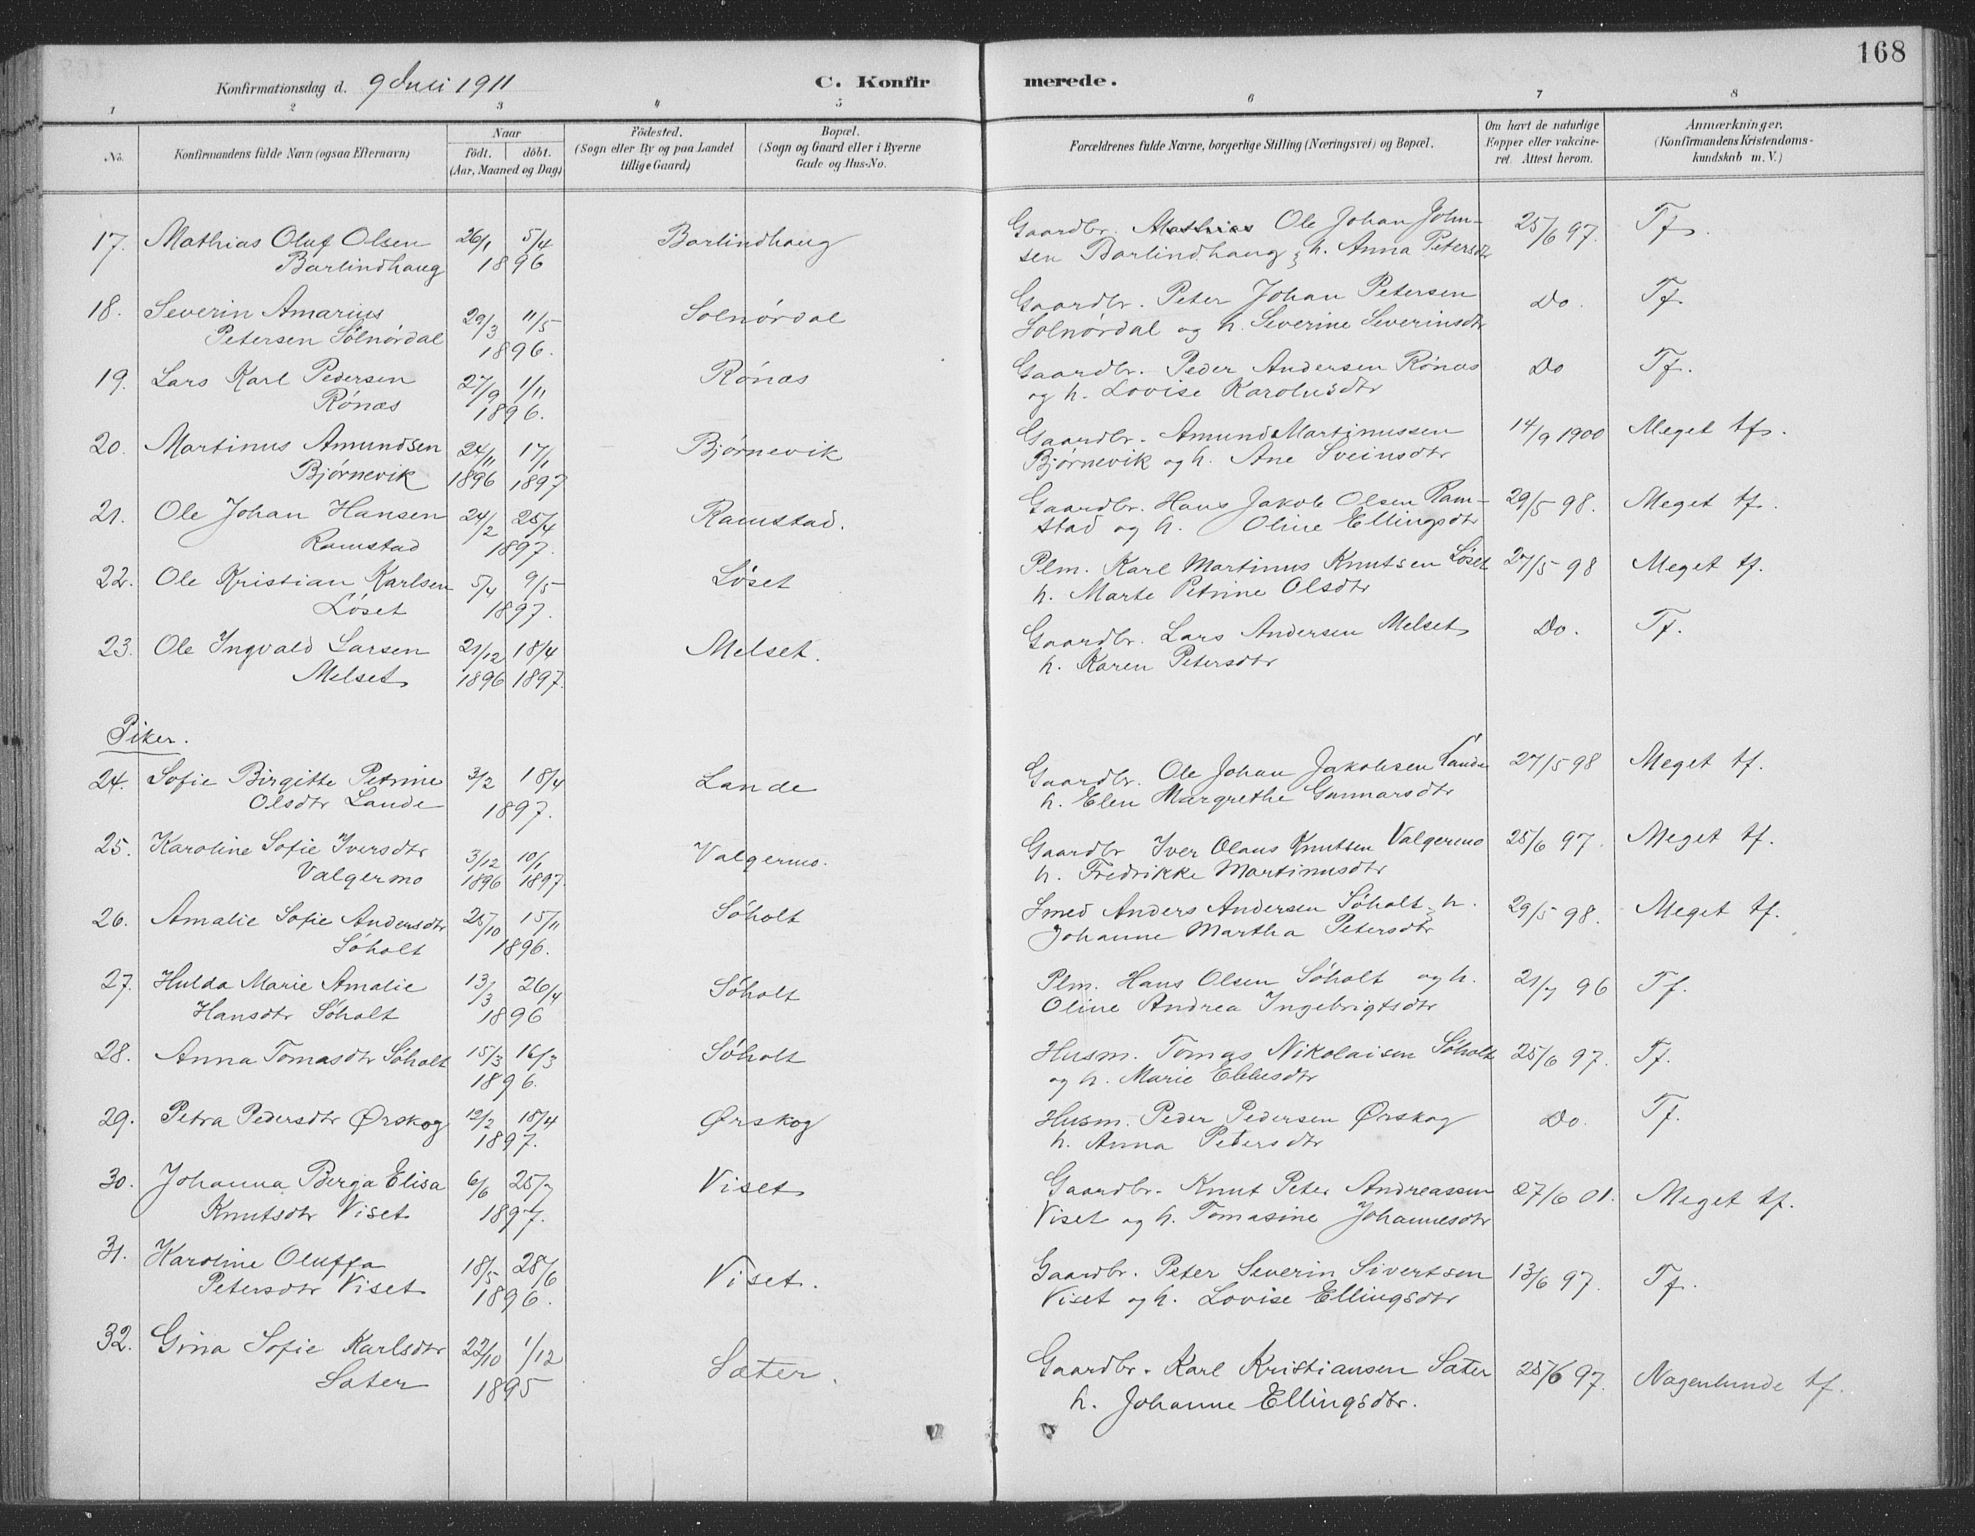 168
Konfirmationsdag d. 9 Juli 1911 C. Konfirmerede.
1 2 3 4 5 6 7 8
No. Konfirmandens fulde Navn (ogsaa Efternavn) Naar Födt. döbt. (Aar, Maaned og Dag) Födested. (Sogn eller By og paa Landet tillige Gaard) Bopæl. (Sogn og Gaard eller i Byerne Gade og Hus-No. Forældrenes fulde Navne, borgerlige Stilling (Næringsvei) og Bopæl. Om havt de naturlige Kopper eller vakcineret. Attest herom. Anmærkninger. (Konfirmandens Kristendomskundskab m. V.)
17. Mathias Oluf Olsen 26/1 5/4 Barlindhaug Gaardbr. Ole Johan John- 25/6 97. Tf.
Barlindhaug 1896 sen Barlindhaug h. Anna Petersdtr
18. Severin Amarius 29/3 11/5 Solnørdal Gaardbr. Peter Johan Petersen Do. Tf.
Petersen Sølnørdal 1896. Solnørdal og h. Severine Severinsdtr
19. Lars Karl Pedersen 27/9 1/11 Rönæs Gaardbr. Peder Andersen Rönæs Do Tf.
Rönæs 1896. og h. Lovise Karolusdtr
20. Martinus Amundsen 24/11 17/1 Bjørnevik Gaardbr. Amund Martinussen 14/9 1900 Meget tf.
Bjørnevik 1896 1897 Bjørnevik og h. Ane Sveinsdtr
21. Ole Johan Hansen 24/2 25/4 Ramstad. Gaardbr. Hans Jakob Olsen Ram- 29/5 98. Meget tf.
Ramstad 1897. stad og h. Oline Ellingsdtr
22. Ole Kristian Karlsen 5/4 9/5 Löset Plm. Karl Martinus Knutsen Löset 27/5 98 Meget tf.
Löset 1897. h. Marte Petrine Olsdtr
23. Ole Ingvald Larsen 21/12 18/4 Melset. Gaardbr. Lars Andersen Melset Do. Tf.
Melset 1896 1897. h. Karen Petersdtr
Piker.
24. Sofie Birgitte Petrine 3/2 18/4 Lande Gaardbr. Ole Johan Jakobsen Lande 27/5 98 Meget tf.
Olsdtr Lande 1897. h. Elen Margrethe Gunnarsdtr
25. Karoline Sofie Iversdtr 3/12 10/1 Valgermo. Gaardbr Iver Olaus Knutsen Valgermo 25/6 97. Meget tf.
Valgermo 1896 1897. h. Fredrikke Martinusdtr
26. Amalie Sofie Andersdtr 25/10 15/11 Söholt Smed Anders Andersen Söholt h. 29/5 98. Meget tf.
Söholt 1896. Johanne Martha Petersdtr
27. Hulda Marie Amalie 13/3 26/4 Söholt Plm. Hans Olsen Söholt og h. 21/7 96 Tf.
Hansdtr Söholt 1896 Oline Andrea Ingebrigtsdtr
28. Anna Tomasdtr Söholt 15/3 16/3 Söholt Husm. Tomas Nikolaisen Söholt 25/6 97. Tf.
1896. og h. Marie Ebbesdtr
29. Petra Pedersdtr Ørskog 12/2 18/4 Ørskog Husm. Peder Pedersen Ørskog Do. Tf.
1897. h. Anna Petersdtr
30. Johanna Berga Elisa 6/6 25/7 Viset Gaardbr. Knut Peter Andreassen 27/6 01. Meget tf.
Knutsdtr Viset 1897. Viset og h. Tomasine Johannesdtr
31. Karoline Oluffa 18/5 28/6 Viset. Gaardbr. Peter Severin Sivertsen 13/6 97. Tf.
Petersdtr Viset 1896. Viset og h. Lovise Ellingsdtr
32. Gina Sofie Karlsdtr 22/10 1/12 Sæter. Gaardbr. Karl Kristiansen Sæter 25/6 97. Nogenlunde tf.
Sæter 1895 h. Johanne Ellingsdtr.